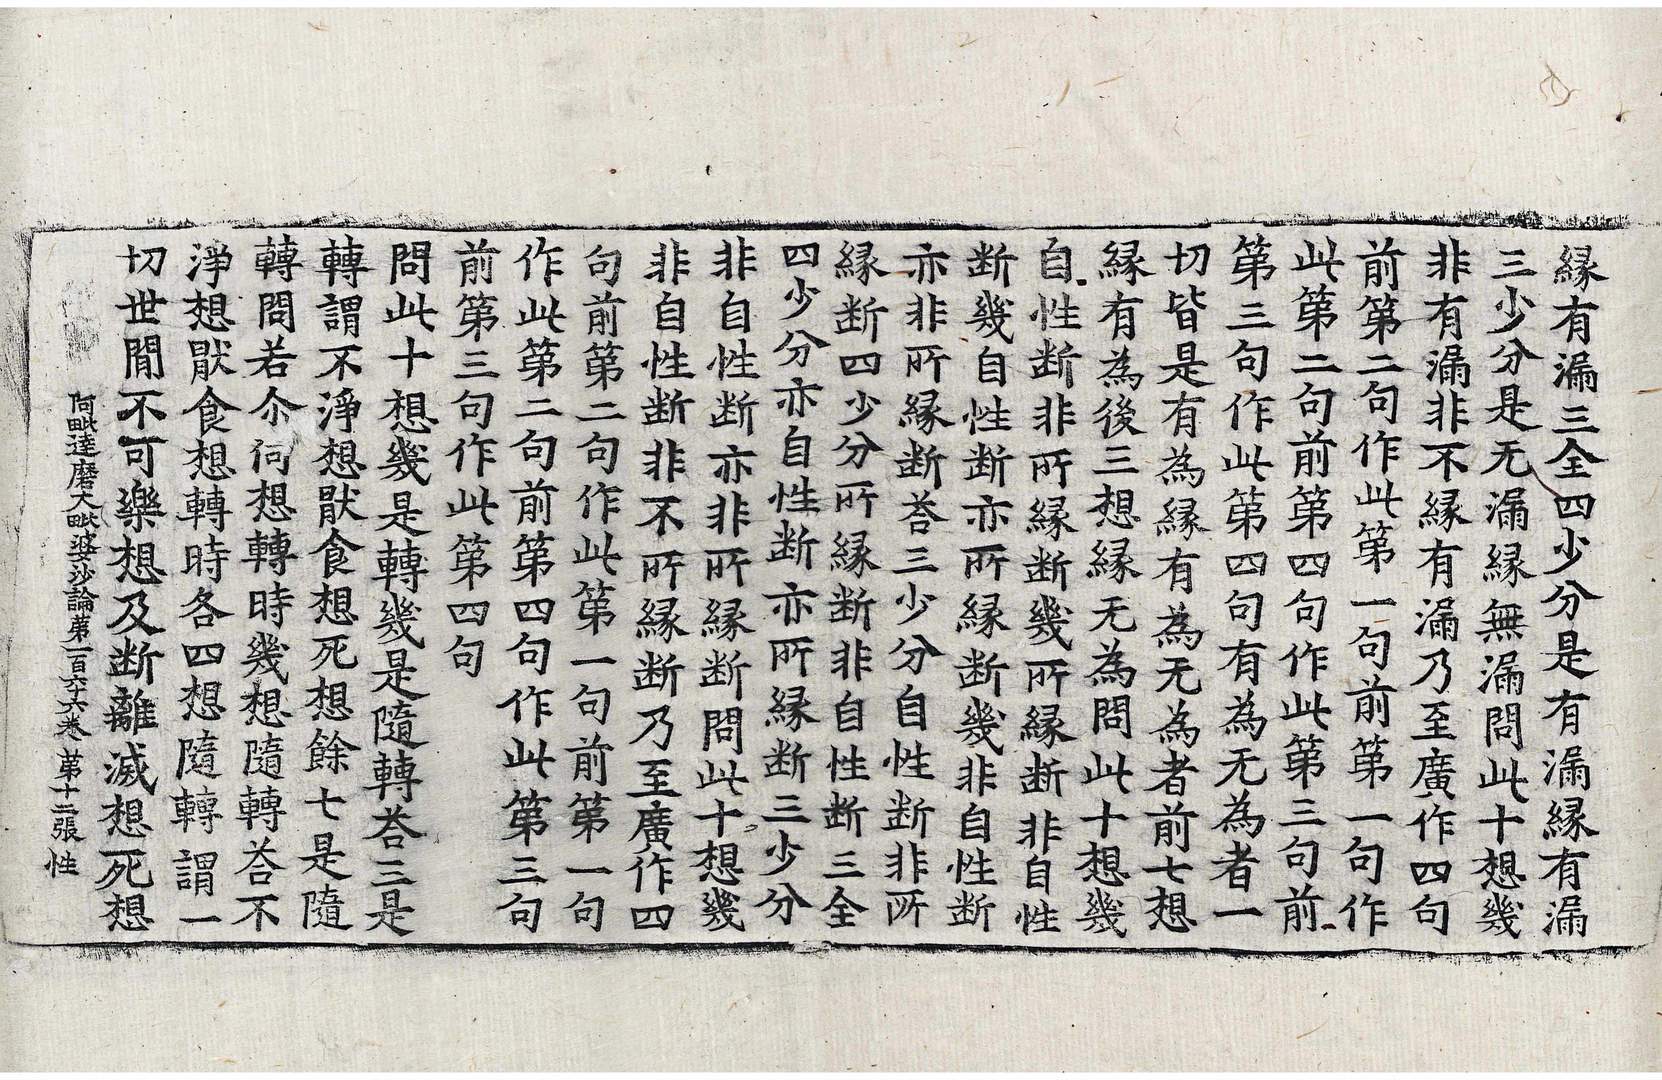 縁有漏三全四少分是有漏縁有漏
三少分是无漏縁無漏問此十想幾
非有漏非不縁有漏乃至廣作四句
前第二句作此第一句前第一句作
此第二句前第四句作此第三句前
第三句作此第四句有為无為者一
切皆是有為縁有為无為者前七想
縁有為後三想縁无為問此十想幾
自性断非所縁断幾所縁断非自性
断幾自性断亦所縁断幾非自性断
亦非所縁断荅三少分自性断非所
縁断四少分所縁断非自性断三全
四少分亦自性断亦所縁断三少分
非自性断亦非所縁断問此十想幾
非自性断非不所縁断乃至廣作四
句前第二句作此第一句前第一句
作此第二句前第四句作此第三句
前第三句作此第四句
問此十想幾是轉幾是隨轉荅三是
轉謂不淨想猒食想死想餘七是隨
轉問若尒何想轉時幾想隨轉荅不
淨想猒食想轉時各四想隨轉謂一
切世間不可樂想及断離滅想死想
阿毗達磨大毗婆沙論第一百六十六卷 第十二張 性